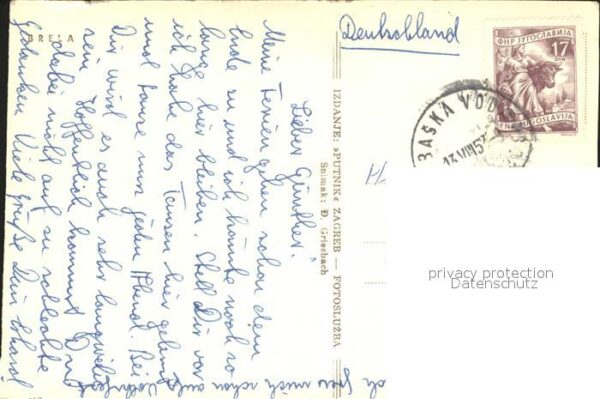 BRELA
Lieber Günther!
Meine Ferien gehen schon dem
Ende zu und ich könnte noch so
lange hier bleiben. Stell Dir vor
ich habe das Tanzen hier gelernt
und tanze nun jeden Abend. Bei
Dir wird es auch sehr langweilig
sein. Hoffentlich kommst Du
dabei nicht auf zu schlechte
Gedanken. Viele Grüße Dein
freu mich schon aufs
IZDANJE: »PUTNIK« ZAGREB — FOTOSLUŽBA
Snimak: Đ. Griesbach
Deutschland
ФНР ЈУГОСЛАВИЈА
17
DIN
FNR JUGOSLAVIJA
BAŠKA VODA
privacy protection
Datenschutz